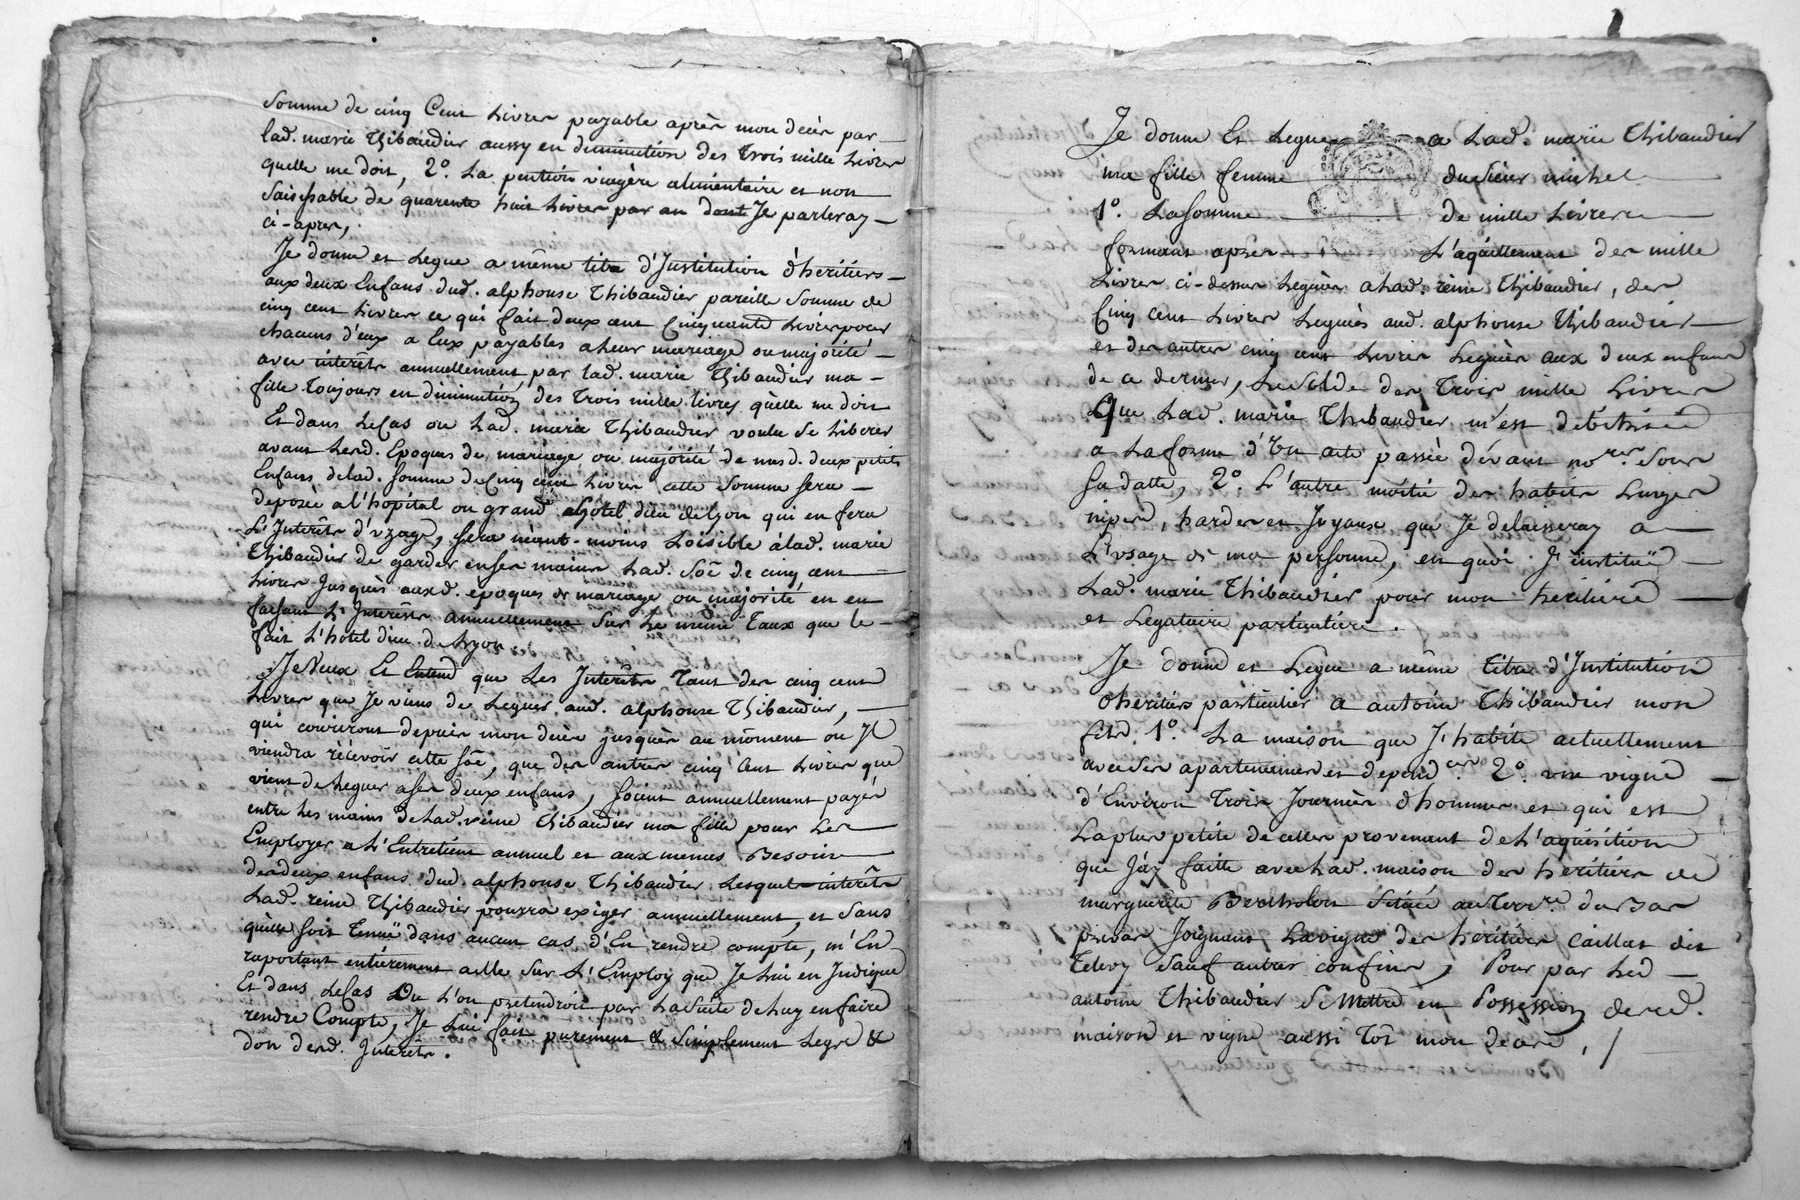 Somme de cinq Cent Livres payable après mon decès par
lad. marie Thibaudier aussy en diminution des Trois mille Livres
quelle me doit, 2.º La pention viagère alimentaire et non
Saisissable de quarente huit Livres par an dont Je parleray
ci-apres,
Je donne et Legue a même titre d'Institution d'heritiers
aux deux Enfans dud. alphonse Thibaudier pareille Somme de
cinq cent Livres ce qui fait deux cent Cinquante Livres pour
chacuns d'eux a Eux payables a Leur mariage ou majorité
avec interêts annuellement par lad. marie Thibaudier ma
fille Toujours en diminution des Trois mille livres qu'elle me doit
Et dans Le Cas ou Lad. marie Thibaudier voulu Se Liberer
avant Lesd. Epoques de mariage ou majorité de mesd. deux petits
Enfans delad. Somme de Cinq cent Livres cette Somme sera
deposée a l'hôpital ou grand hôtel dieu de Lyon qui en fera
L'Interêts d'uzage, Sera néant-moins Loisible à lad. marie
Thibaudier de garder en ses mains Lad. Soẽ de cinq cent
Livres Jusquès auxd. epoques de mariage ou majorité en en
faisant L'Interêts annuellement Sur Le même Taux que le
fait L'hôtel dieu de Lyon
Je Veux Et Entend que Les Interêts Tant des cinq cent
Livres que Je viens de Leguer aud. alphonse Thibaudier,
qui couriront depuis mon decès jusquès au môment ou Jl
viendra récevoir cette Soẽ, que des autres cinq Cent Livres que
viens de Leguer a ses deux enfans, Soient annuellement payés
entre Les mains de Lad. reine Thibaudier ma fille pour Les
Employer a L'Entretiens annuel et aux memes Besoins
des deux enfans dud. alphonse Thibaudier Lesquels interêts
Lad. reine Thibaudier poura exiger annuellement, et Sans
qu'elle soit Tenuë dans aucun cas d'En rendre compte, m'En
raportant entièrement a elle Sur L'Employ que Je Lui en Indique
Et dans Le Cas Ou L'on pretendroit par La Suite de Luy en faire
rendre Compte, Je Lui fait purement & Simplement Legs &
don desd. Interêts.
Je donne Et Legue a Lad. marie Thibaudier
ma fille femme du Sieur michel
1º. La Somme de mille Livres
formant après L'aquittement des mille
Livres ci-dessus Leguées a Lad. reine Thibaudier, des
Cinq Cent Livres Legués aud. alphonse Thibaudier
et des autres cinq cent Livres Legués aux deux enfans
de ce dernier, Le Solde des Trois mille Livres
Que Lad. marie Thibaudier m'est debitrice
a La forme d'Un acte passé dévant no.res Sous
Sa datte, 2º. L'autre moitié des habits Linges
nipes, hardes et Joyaux que Je delaisseray a
L'usage de ma personne, en quoi J'instituë
Lad. marie Thibaudier pour mon heritiere
et Legataire particulière.
Je donne et Legue a même titre d'Institution
d'heritiers particulier a antoine Thibaudier mon
fils. 1º. La maison que J'habite actuellement
avec Ses apartenances et depend.ces 2º. une vigne
d'Environ Trois Journées d'hommes et qui est
La plus petite de celles provenant de L'aquisition
que J'ay faitte avec Lad. maison des heritiers de
marguerite Bertholon Située au Terr.re du Bas
privas Joignant La vigne des heritiers Caillat dit
Sauf autres confins, Pour par Led.
antoine Thibaudier Se Mettre en Possession desd.
maison et vigne aussi Tôt mon decès,